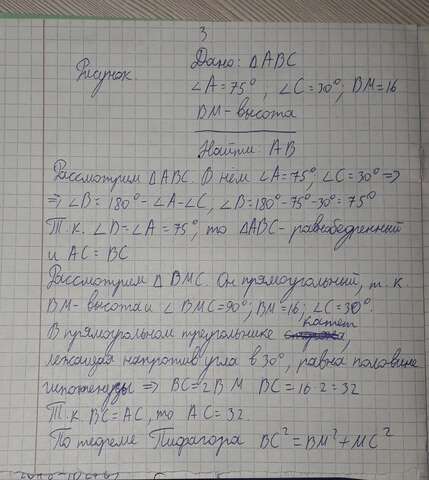 3
Рисунок
Дано: △ABC
∠A = 75°; ∠C = 30°; BM = 16
BM - высота
Найти: AB
Рассмотрим △ABC. В нём ∠A = 75°, ∠C = 30° =>
=> ∠B = 180° - ∠A - ∠C, ∠B = 180° - 75° - 30° = 75°
Т.к. ∠B = ∠A = 75°, то △ABC - равнобедренный
и AC = BC
Рассмотрим △BMC. Он прямоугольный, т.к.
BM - высота и ∠BMC = 90°; BM = 16; ∠C = 30°.
В прямоугольном треугольнике катет,
лежащая напротив угла в 30°, равна половине
гипотенузы => BC = 2BM BC = 16·2 = 32
Т.к. BC = AC, то AC = 32.
По теореме Пифагора BC² = BM² + MC²